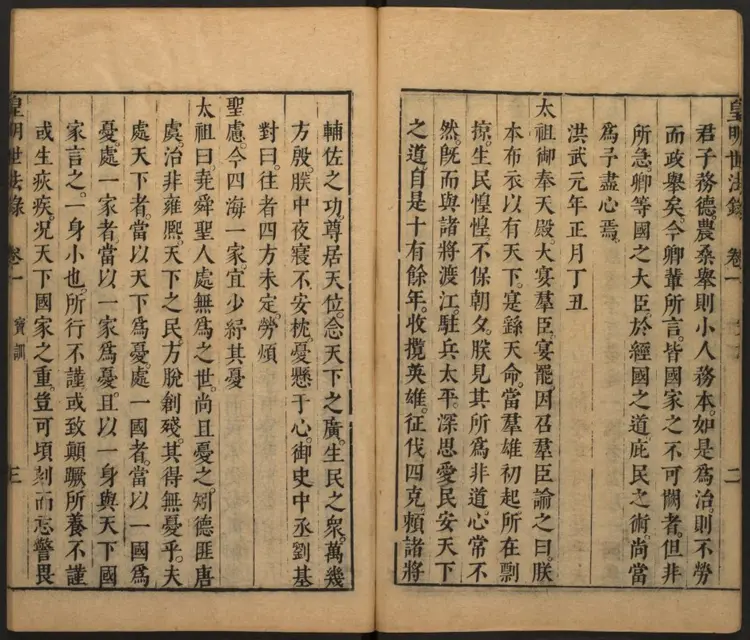 皇明世法錄 卷一 二
君子務德。農桑舉則小人務本。如是爲治。則不勞
而政舉矣。今卿輩所言。皆國家之不可闕者。但非
所急。卿等國之大臣。於經國之道。庇民之術。尚當
爲予盡心焉。
洪武元年正月丁丑
太祖御奉天殿。大宴羣臣。宴罷因召羣臣諭之曰。朕
本布衣以有天下。寔繇天命。當羣雄初起。所在剽
掠。生民惶惶不保朝夕。朕見其所爲非道。心常不
然。旣而與諸將渡江。駐兵太平。深思愛民安天下
之道。自是十有餘年。收攬英雄。征伐四克。賴諸將
輔佐之功。尊居天位。念天下之廣。生民之衆。萬幾
方殷。朕中夜寢不安枕。憂懸于心。御史中丞劉基
對曰。往者四方未定。勞煩
聖慮。今四海一家。宜少紓其憂
太祖曰。堯舜聖人處無爲之世。尚且憂之。矧德匪唐
虞。治非雍熙。天下之民。方脫創殘。其得無憂乎。夫
處天下者。當以天下爲憂。處一國者。當以一國爲
憂。處一家者。當以一家爲憂。且以一身與天下國
家言之。一身小也。所行不謹或致顛蹶。所養不謹
或生疢疾。況天下國家之重。豈可頃刻而忘警畏
皇明世法錄 卷一 寳訓 三